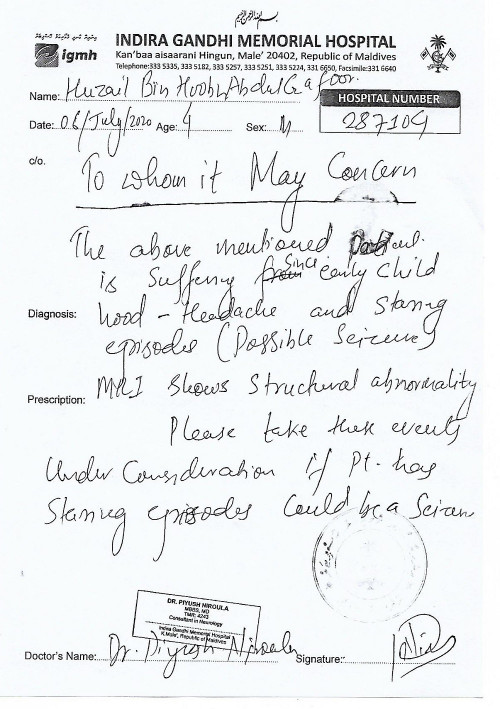 igmh
INDIRA GANDHI MEMORIAL HOSPITAL
Kan'baa aisaarani Hingun, Male' 20402, Republic of Maldives
Telephone:333 5335, 333 5182, 333 5257, 333 5251, 333 5224, 331 6650, Facsimile:331 6640
Name: Huzail Bin Abdul Gafoor
HOSPITAL NUMBER
287104
Date: 06/July/2020 Age: 4 Sex: M
c/o.
To whom it May Concern
The above mentioned
is Suffering from Since early Child
Diagnosis: hood - Headache and Staring
episodes (Possible Seizure)
Prescription: MRI shows Structural abnormality
Please take these events
Under Consideration if Pt. has
Starring episodes Could be a
DR. PIYUSH NIROULA
MBBS, MD
TMR: 4243
Consultant in Neurology
Indira Gandhi Memorial Hospital
K.Male', Republic of Maldives
Doctor's Name: Dr. Piyush Niroula Signature: